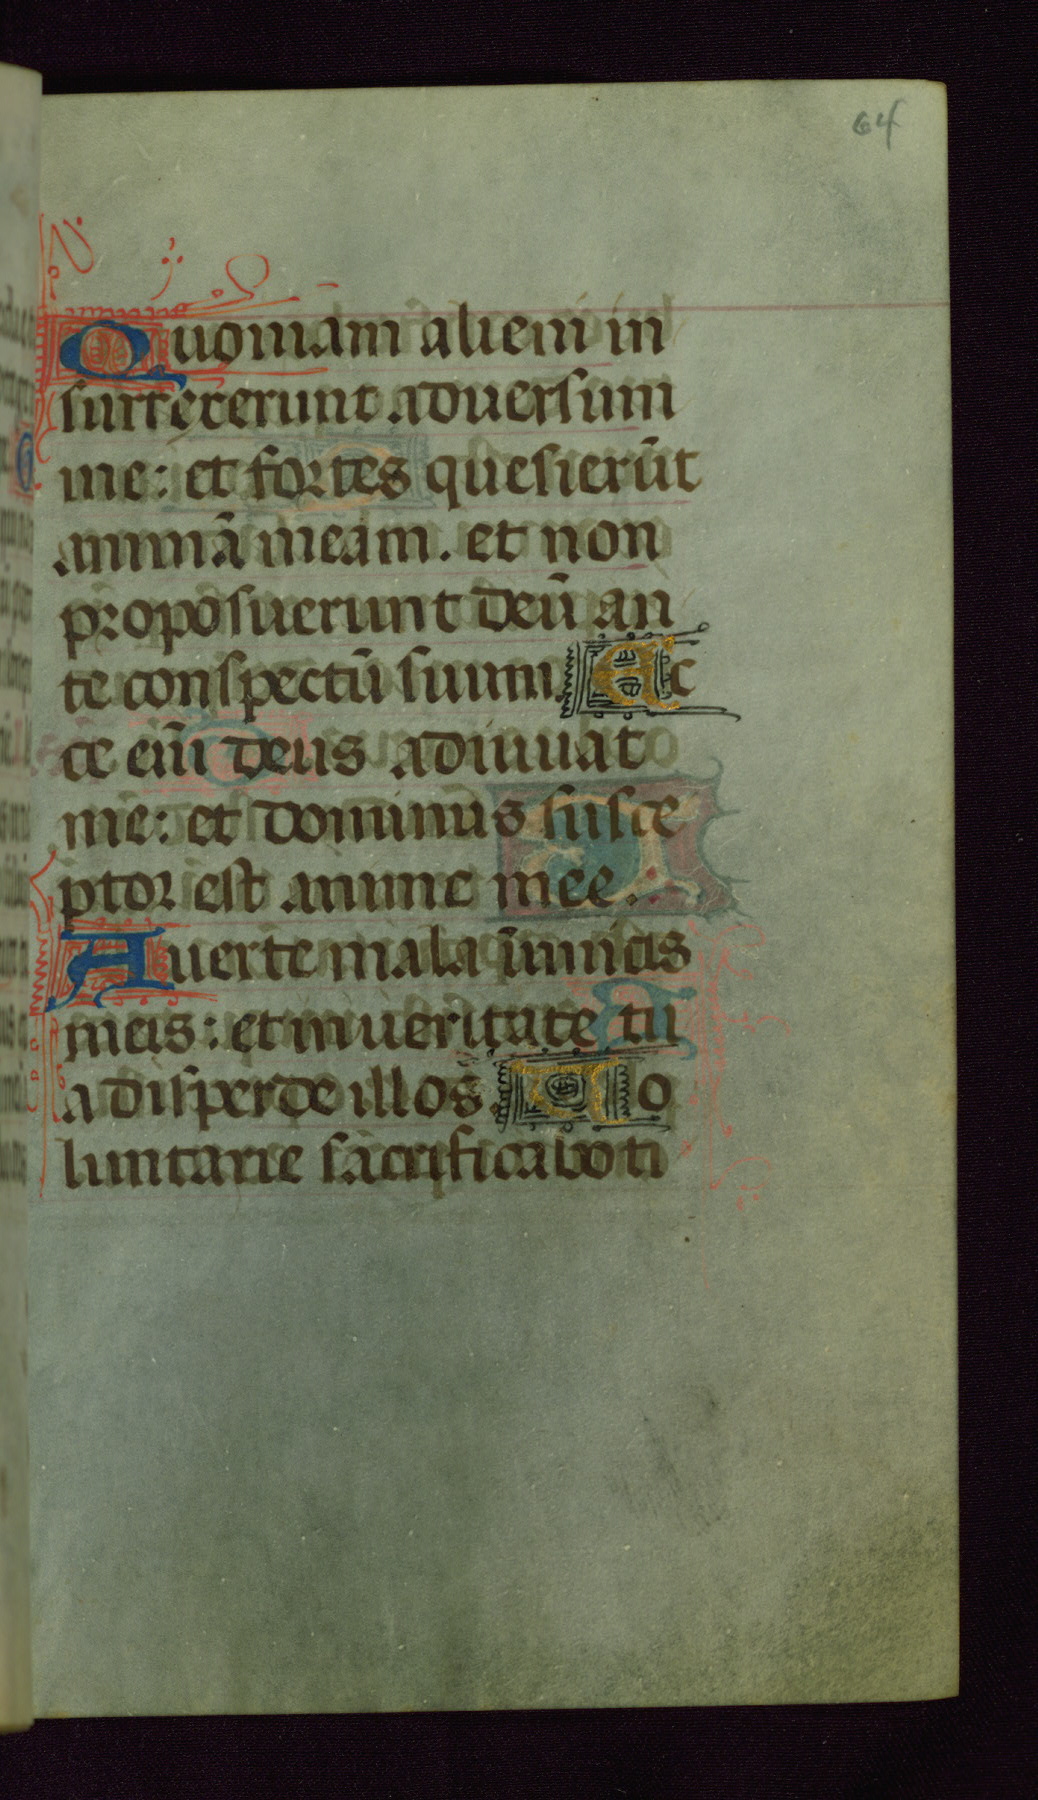 64
Quoniam alieni in
surrexerunt aduersum
me: et fortes quesierūt
animā meam. et non
proposuerunt deū an
te conspectū suum. Ec
ce eim̄ deus adiuuat
me: et dominus susce
ptor est anime mee.
Auerte mala īnimicis
meis: et in ueritate tu
a disperde illos. Uo
luntarie sacrificabo ti